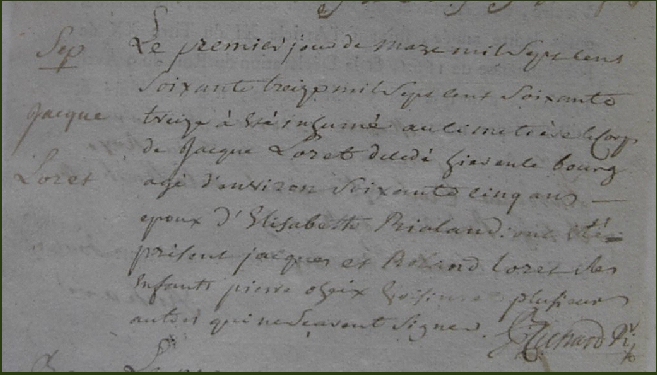 Sep
Jacque
Loret
Le premier jour de mare mil Sept cens
Soixante treize mil Sept cent Soixante
treize à été inhumé au cimetière le Corp
de Jacque Loret décédé hier en le bourg
agé d'environ Soixante cinq ans
epoux d'Elisabeth Rioland ont été
présent jacques et Roland loret Ses
Enfants pierre choix plusieurs
autres qui ne Scavent Signer. Richard